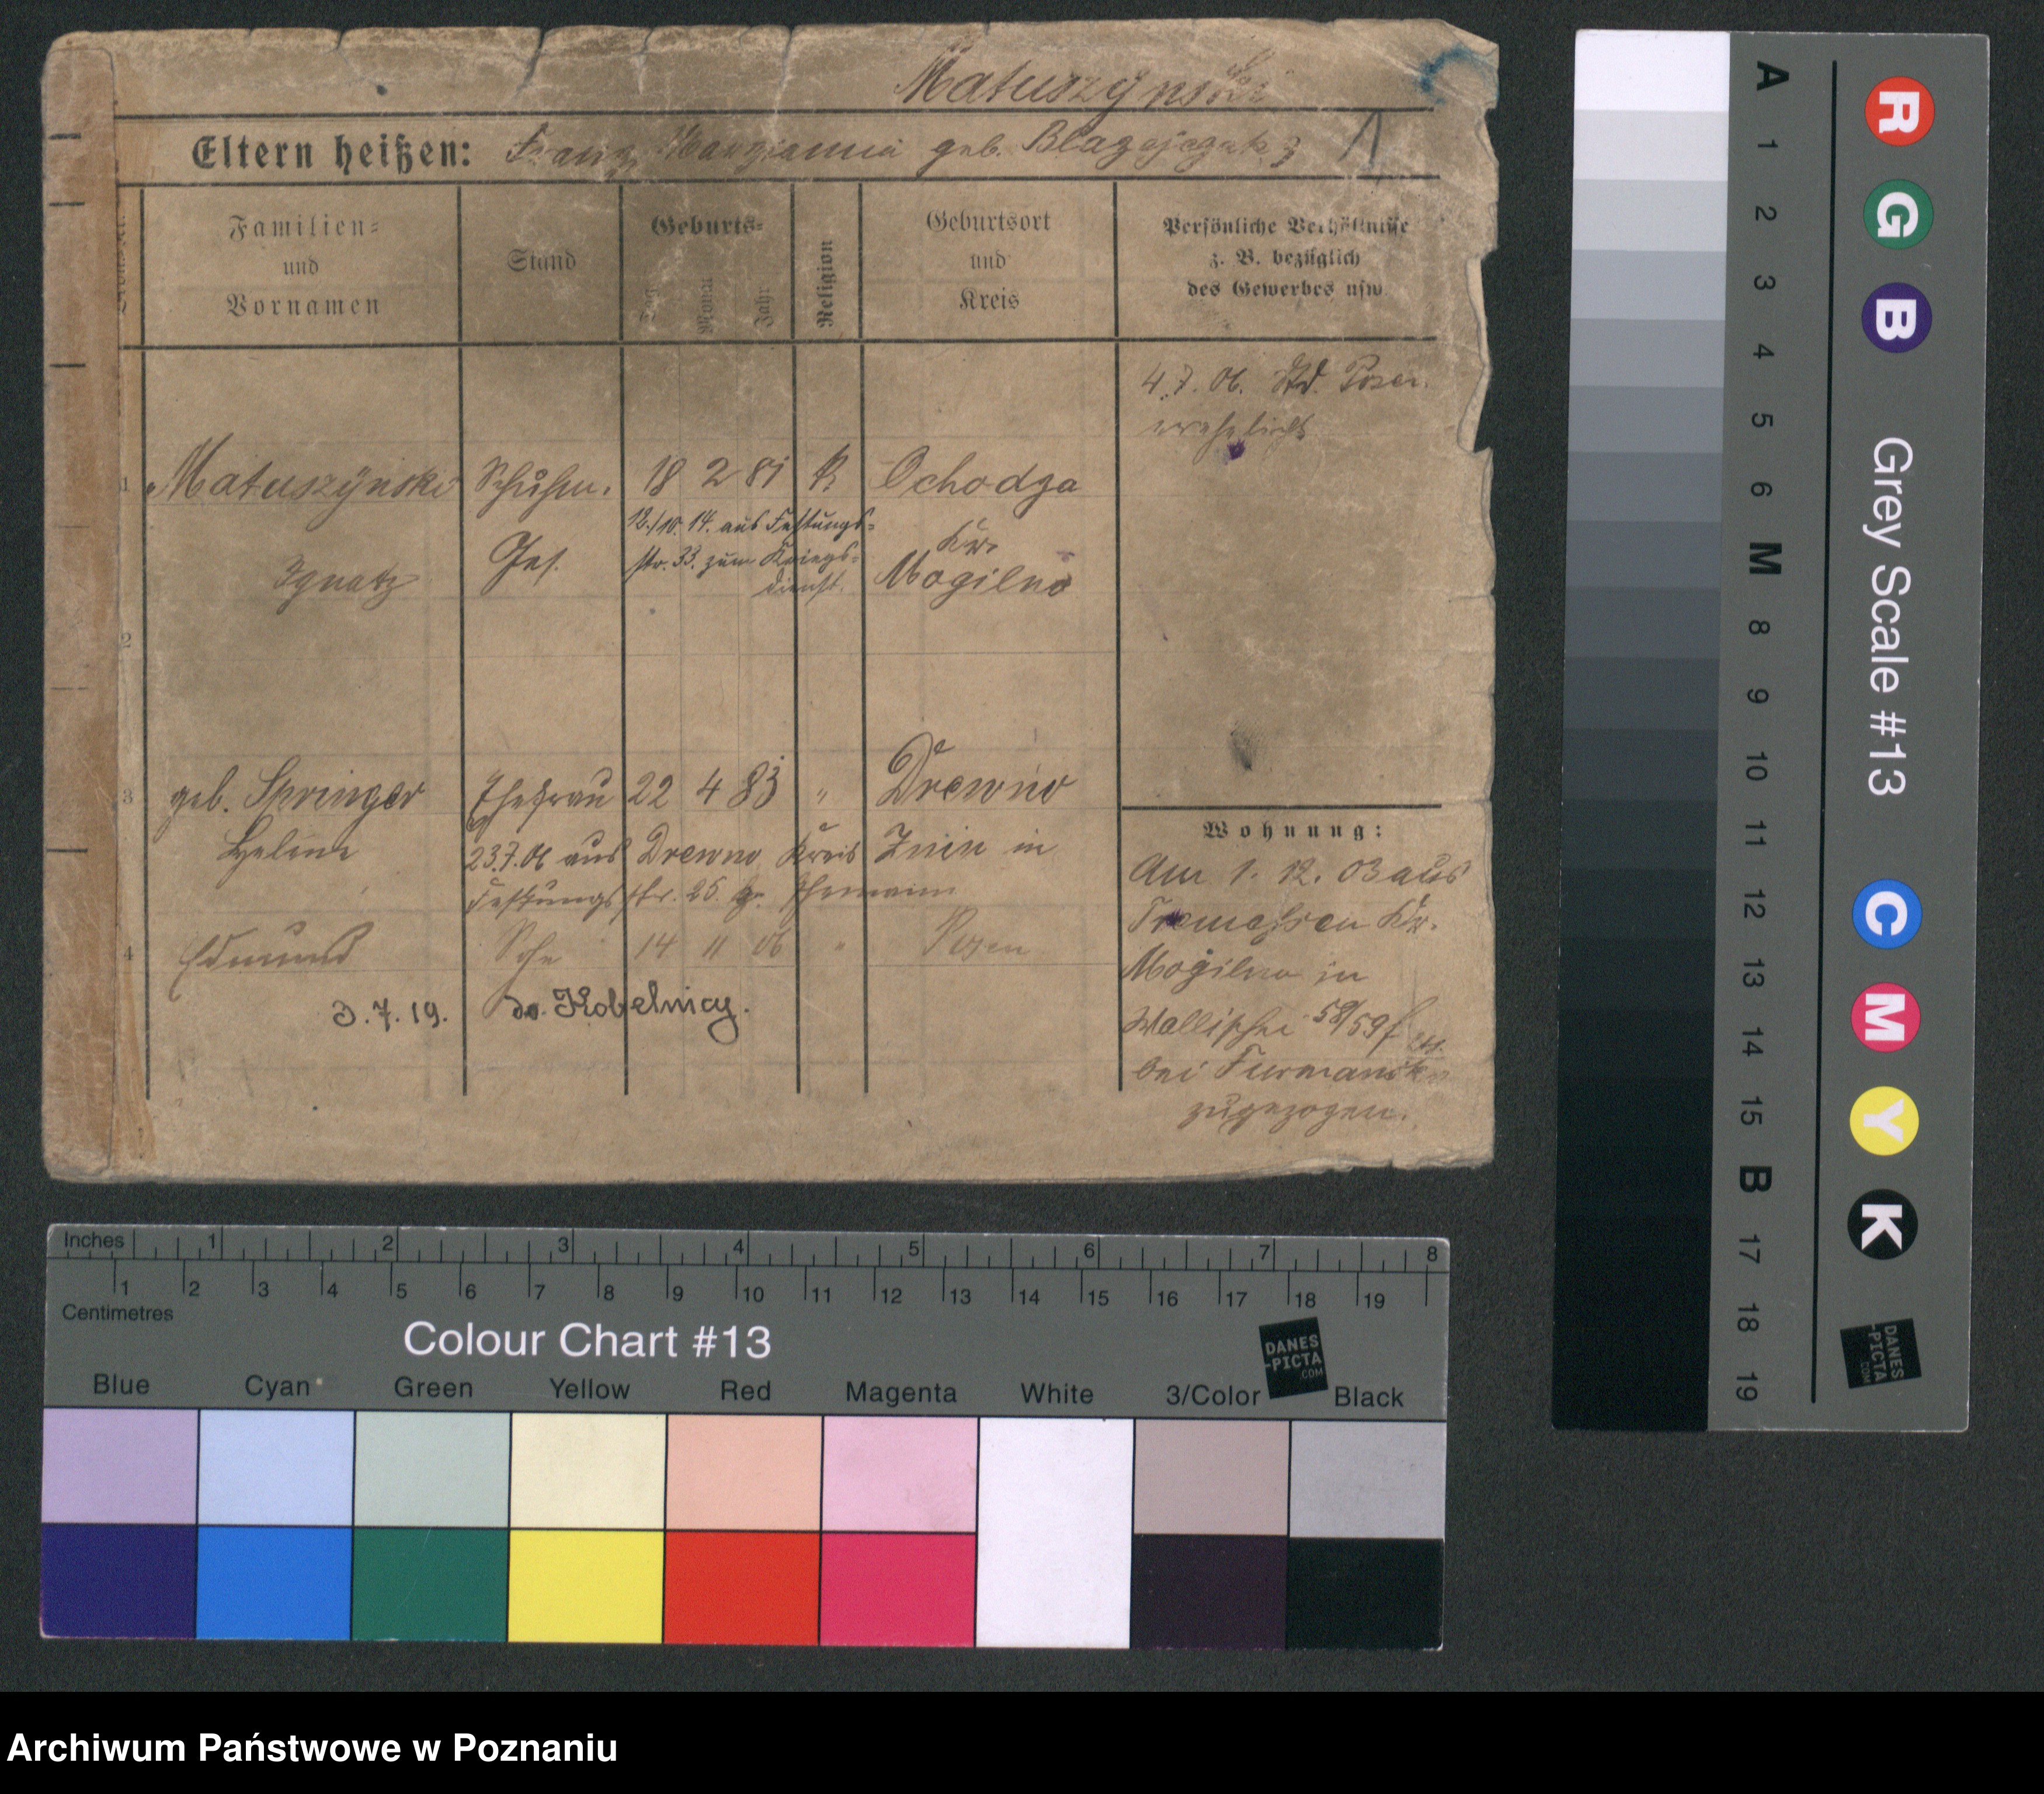 Matuszynski
Eltern heißen: Franz, Maryianna geb. Blazejczak
Familien=
und
Vornamen
Stand
Geburts=
Tag Monat Jahr
Religion
Geburtsort
und
Kreis
Persönliche Verhältnisse
z. B. bezüglich
des Gewerbes usw.
4.7.06. Std. Posen
verehelicht
1 Matuszÿnski Schuhm. 18 2 81 K Ochodza
Ignatz Ges. Kr. Mogilno
12./10. 14. aus Festungs=
str. 33. zum Kriegs=
dienst.
2
3 geb. Springer Ehefrau 22 4 83 " Drewno
Helene 23.7.06 aus Drewno Kreis Znin in
Festungsstr. 25 z. Ehemann
4 Edmund Sohn 14 11 06 " Posen
3.7.19. do Kobelnicy.
Wohnung:
Am 1. 12. 03 aus
Tremessen Kr.
Mogilno in
Wallischei 58/59
bei Furmanski
zugezogen.
A 1 2 3 4 5 6 M 8 9 10 11 12 13 14 15 B 17 18 19
R G B
Grey Scale #13
C M Y K
DANES
-PICTA
.COM
Inches 1 2 3 4 5 6 7 8
1 2 3 4 5 6 7 8 9 10 11 12 13 14 15 16 17 18 19
Centimetres
Colour Chart #13
DANES
-PICTA
.COM
Blue Cyan Green Yellow Red Magenta White 3/Color Black
Archiwum Państwowe w Poznaniu